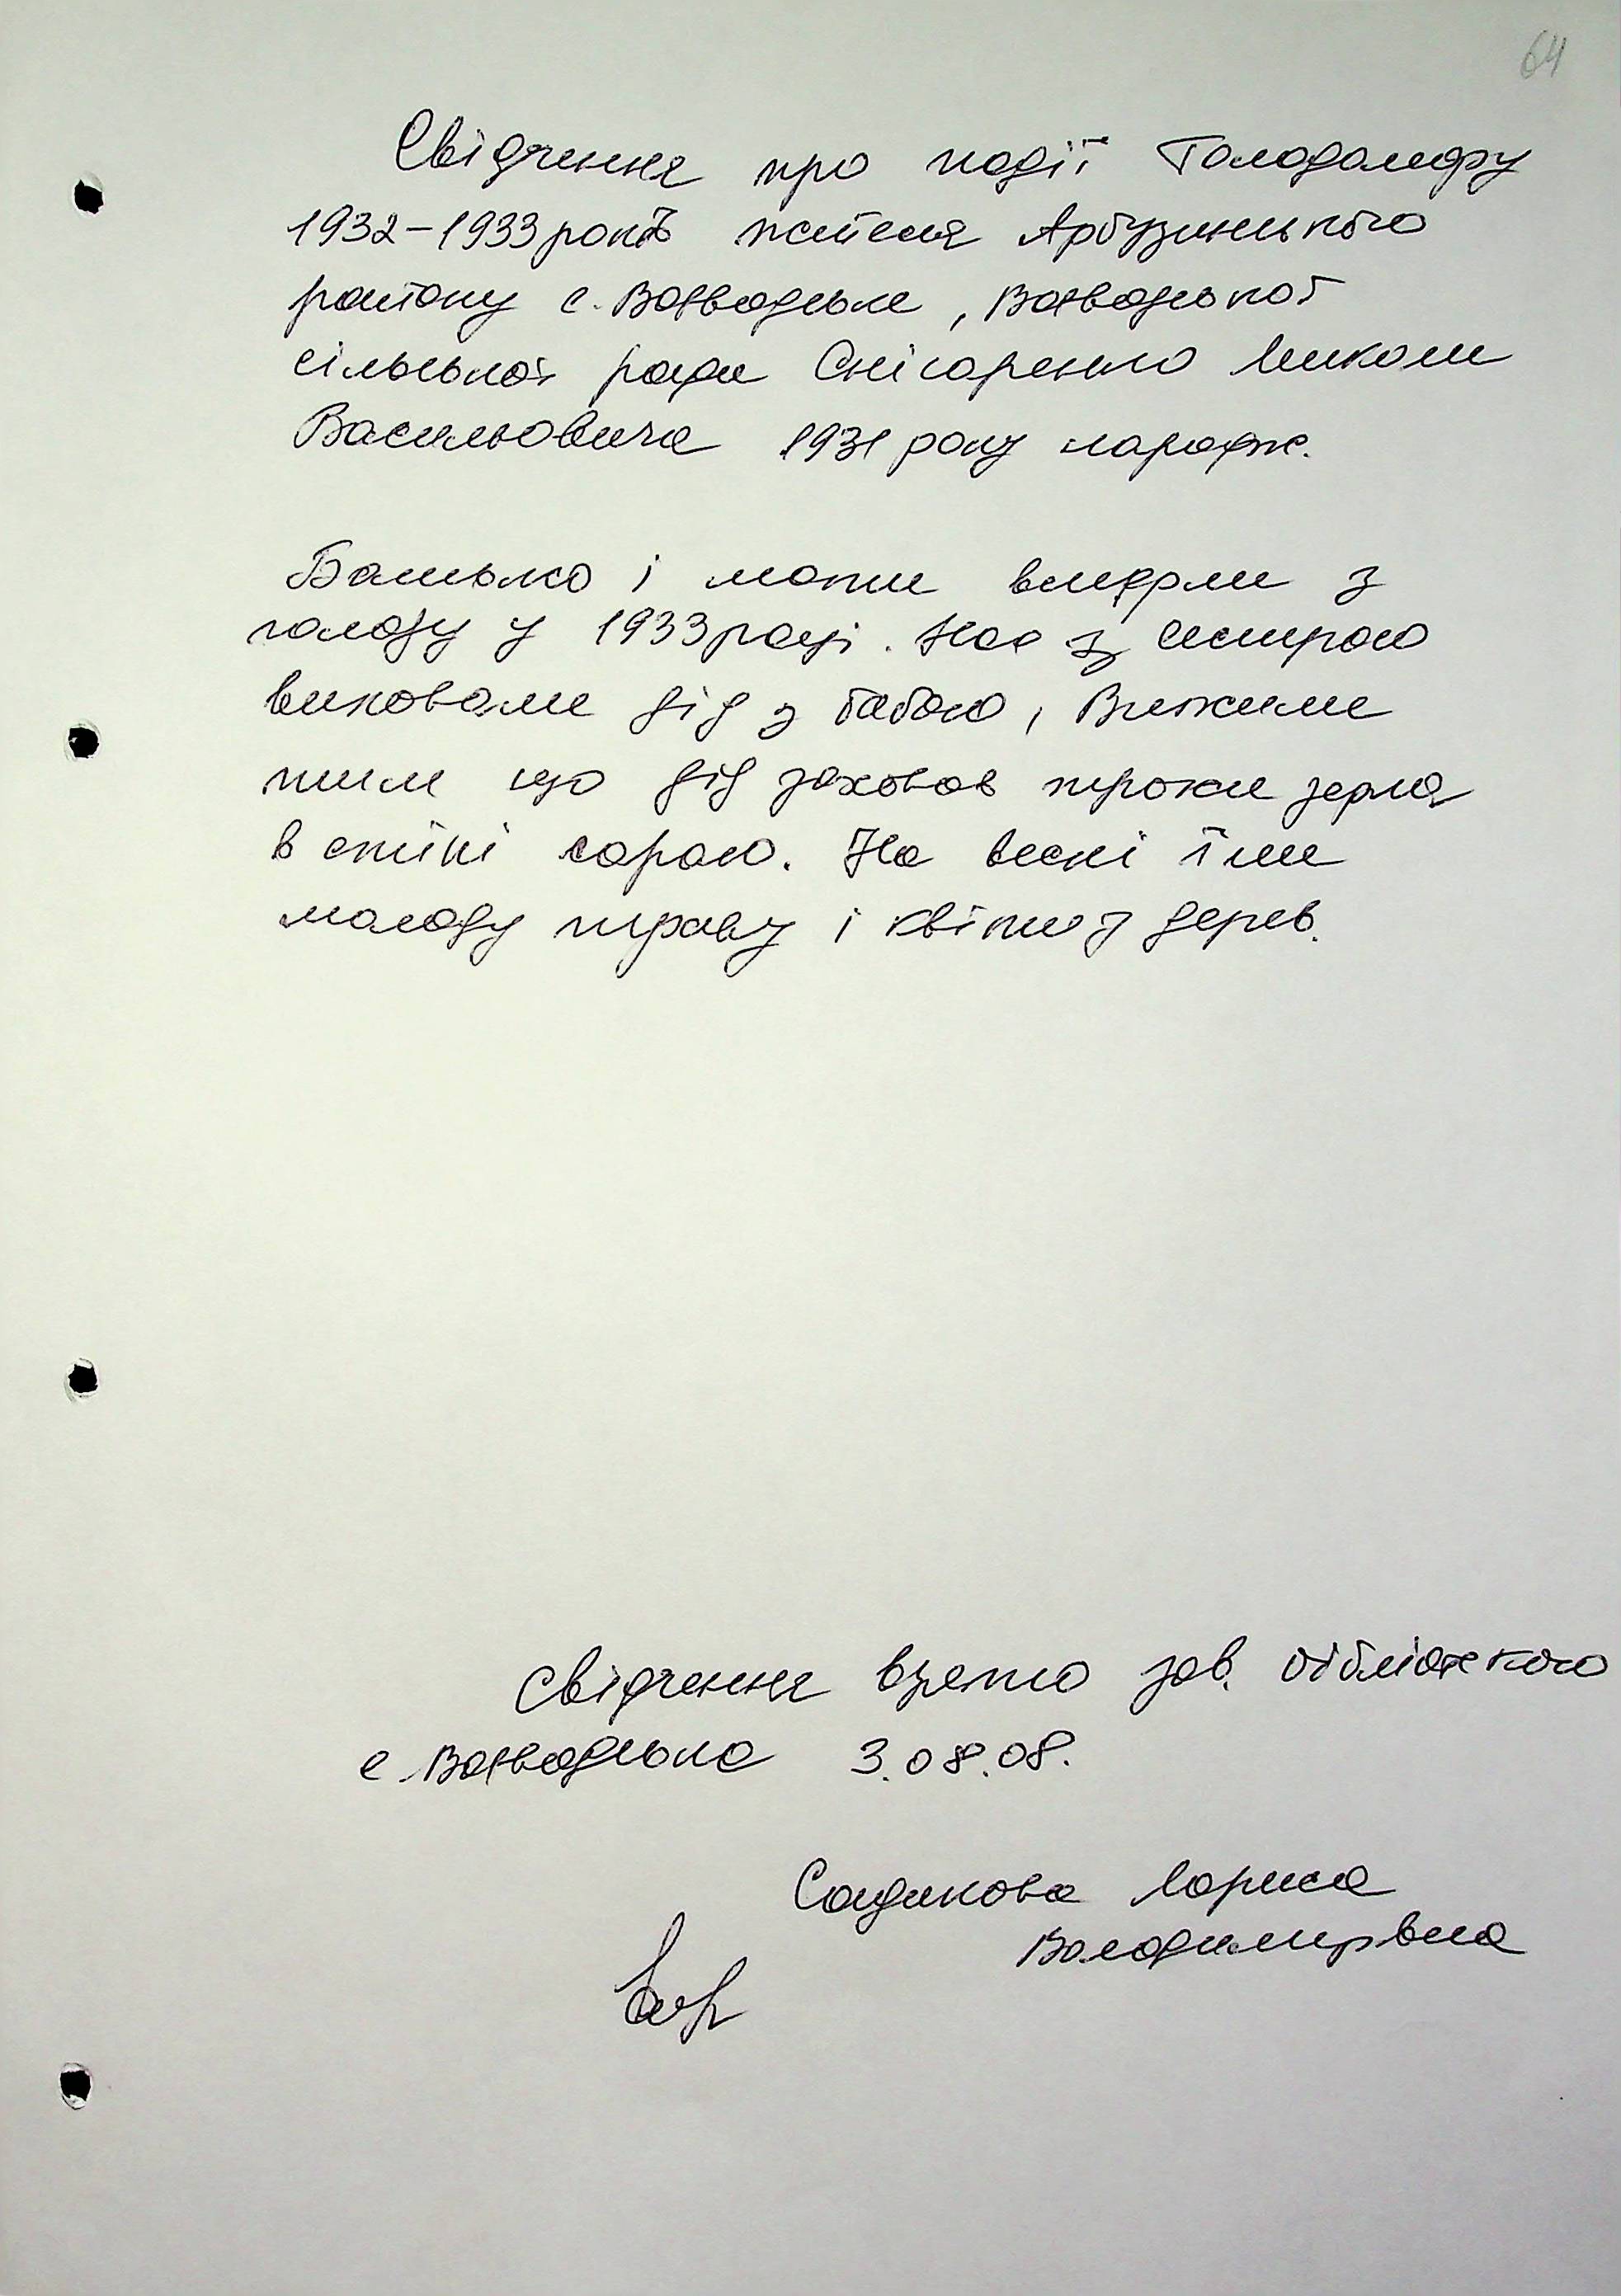 64
Свідчення про події Голодомору
1932-1933 років жителя Арбузинського
району с. Воєводське, Воєводської
сільської ради Снісаренко Миколи
Васильовича 1931 року народж.
Батько і мати вмерли з
голоду у 1933 році. Нас з сестрою
виховали дід з бабою, Вижили
тим що дід заховав трохи зерна
в стіні сараю. На весні їли
молоду траву і квіти з дерев.
Свідчення взято зав. бібліотекою
с. Воєводське 3.08.08.
Садикова Лариса
Володимирівна